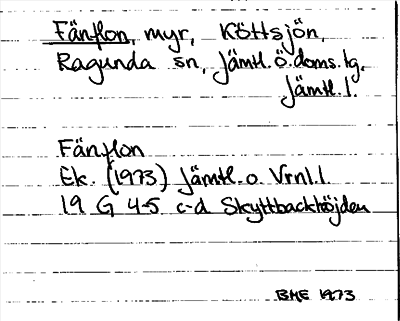 Fänflon, myr, Köttsjön,
Ragunda sn, Jämtl. ö. doms. tg.
Jämtl. l.
Fänflon
Ek. (1973) Jämtl. o. Vrnl. l.
19 G 4-5 c-d Skyttbackhöjden
BME 1973